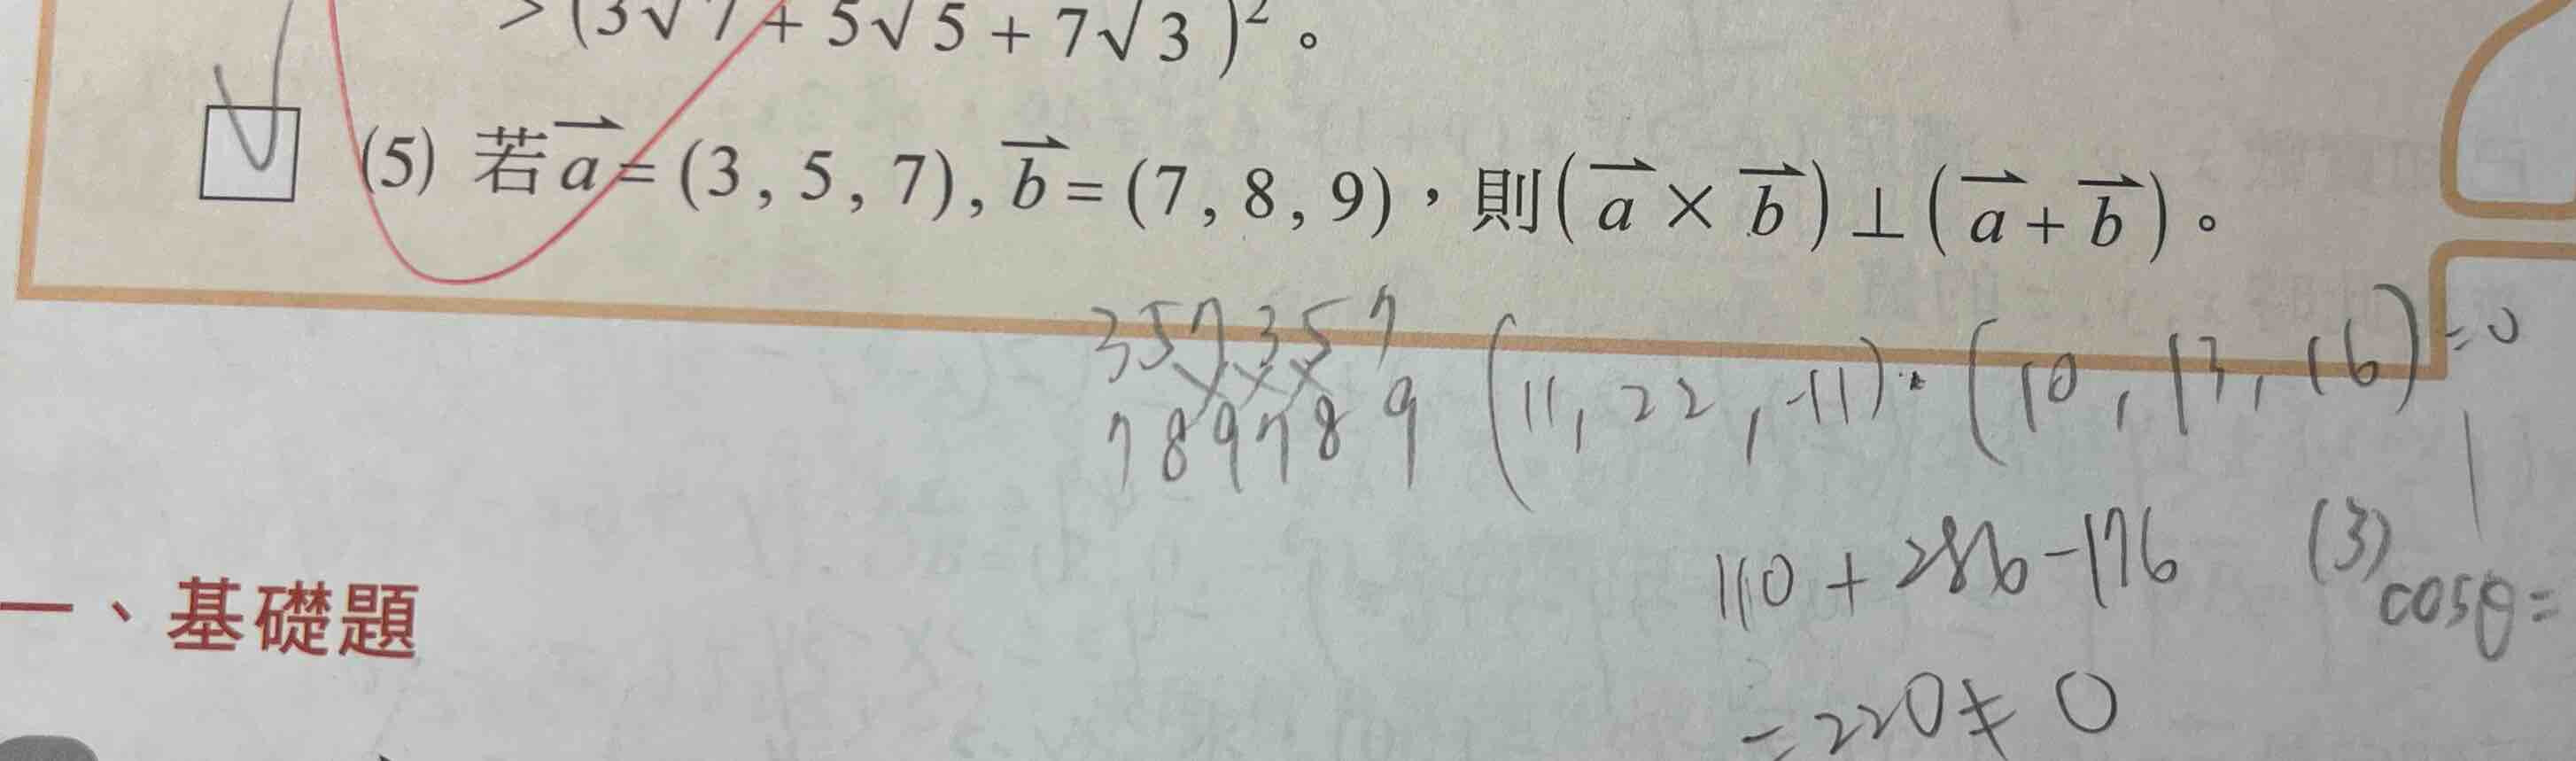 > (3√7 + 5√5 + 7√3)² 。
(5) 若 a⃗ = (3 , 5 , 7) , b⃗ = (7 , 8 , 9) ,則( a⃗ × b⃗ ) ⊥ ( a⃗ + b⃗ ) 。
3 5 7 3 5 7
7 8 9 7 8 9
(11, 22, -11) · (10, 13, 16) = 0
110 + 286 - 176
(3)
cosθ =
= 220 ≠ 0
一、基礎題